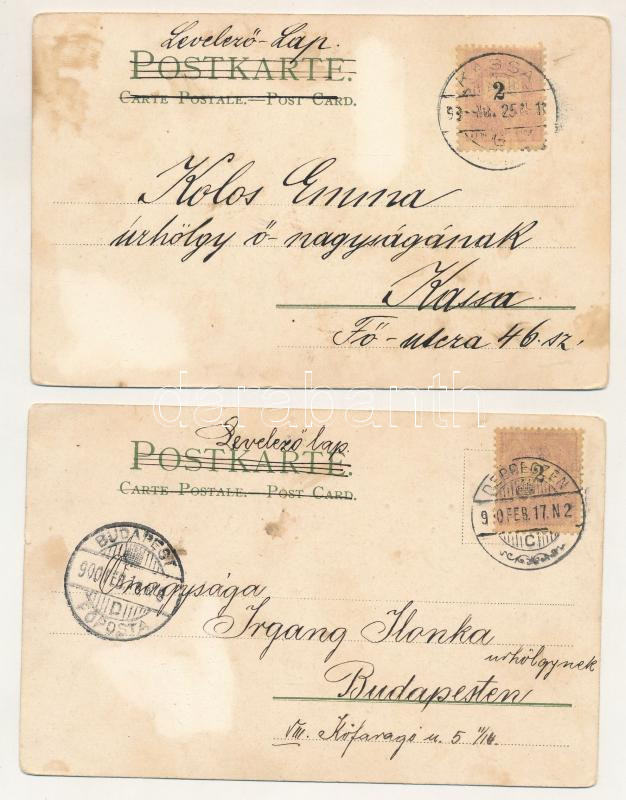 Levelező-Lap.
POSTKARTE.
CARTE POSTALE.—POST CARD.
KASSA
2
Kolos Emma
úrhölgy ő-nagyságának
Kassa
Fő-utcza 46. sz.
darabanth
Levelező lap.
POSTKARTE.
CARTE POSTALE.—POST CARD.
2
DEBRECZEN
900 FEB. 17. N 2
C
BUDAPEST
900 FEB.
D
FŐPOSTA
Őnagysága
Irgang Ilonka
urhölgynek
Budapesten
VIII. Kőfaragó u. 5